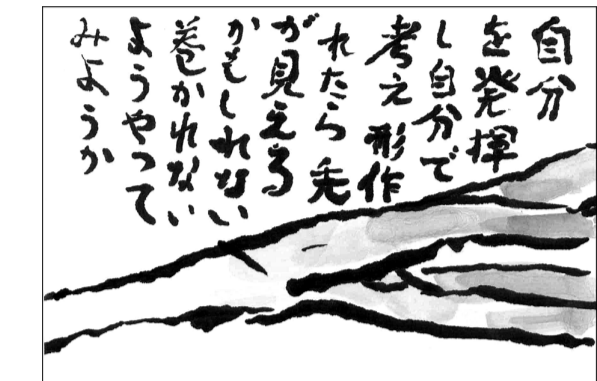 自分
を発揮
し自分で
考え形作
れたら先
が見える
かもしれない
巻かれない
ようやって
みようか